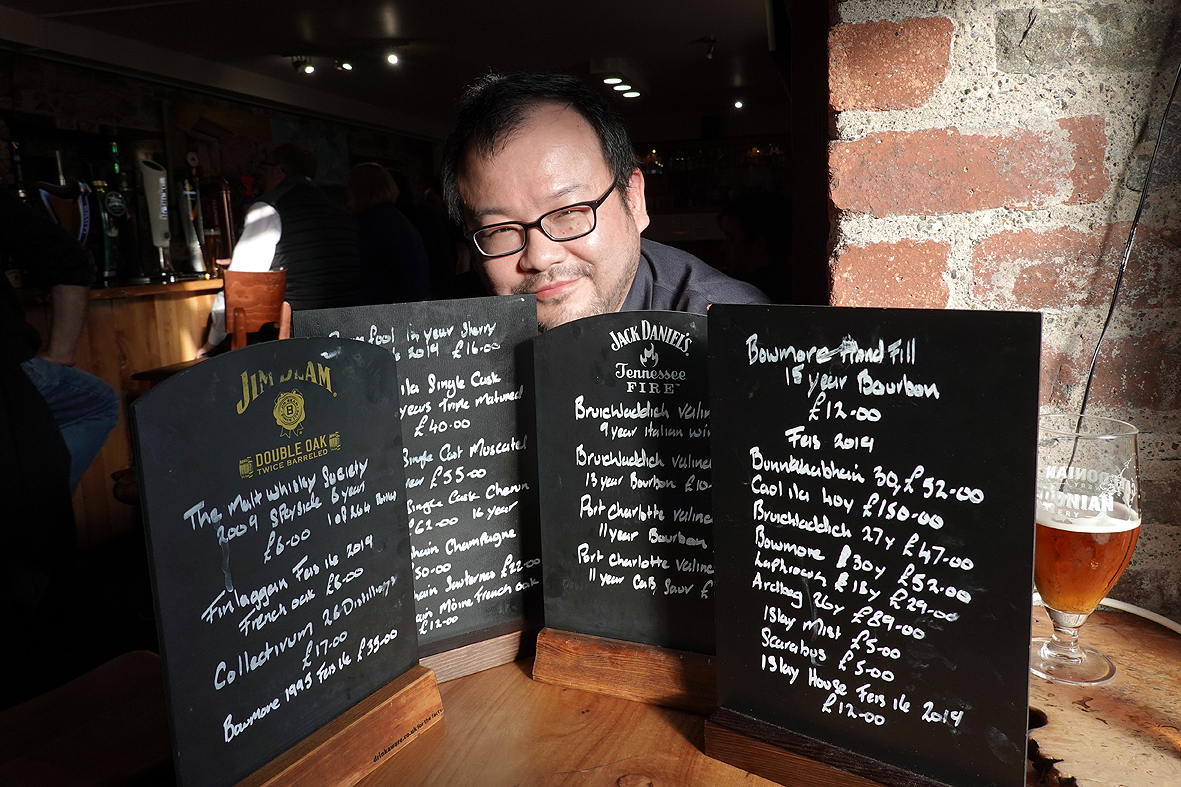 JIM BEAM
B
DOUBLE OAK
TWICE BARRELED
The Malt Whisky Society
2009 Speyside 8 year
£6-00 1 of 264 Bottles
Finlaggan Feis ile 2019
French oak £6-00
Collectivum 26 Distillery
£17-00
Bowmore 1995 Feis ile £35-00
drinkaware.co.uk for the facts
in year Sherry
2019 £16-00
ila Single Cask
years Triple Matured
£40-00
Single Cast Muscatel
£55-00
Single Cask
£62-00 16 year
hain Champagne
£50-00
hain Sauternes £22-00
ain Moine French oak
£12-00
JACK DANIEL'S
Tennessee
FIRE
Bruichladdich Valinc
9 year Italian Wi
Bruichladdich Valinc
15 year Bourbon £10-
Port Charlotte Valinc
11 year Bourbon
Port Charlotte Valinc
11 year Cab Sauv £
Bowmore Hand Fill
15 year Bourbon
£12-00
Feis 2019
Bunnahabhain 30y £52-00
Caol ila 40y £150-00
Bruichladdich 27y £47-00
Bowmore 30y £52-00
Laphroaig 18y £29-00
Ardbeg 26y £89-00
Islay Mist £5-00
Scarabus £5-00
Islay House Feis ile 2019
£12-00